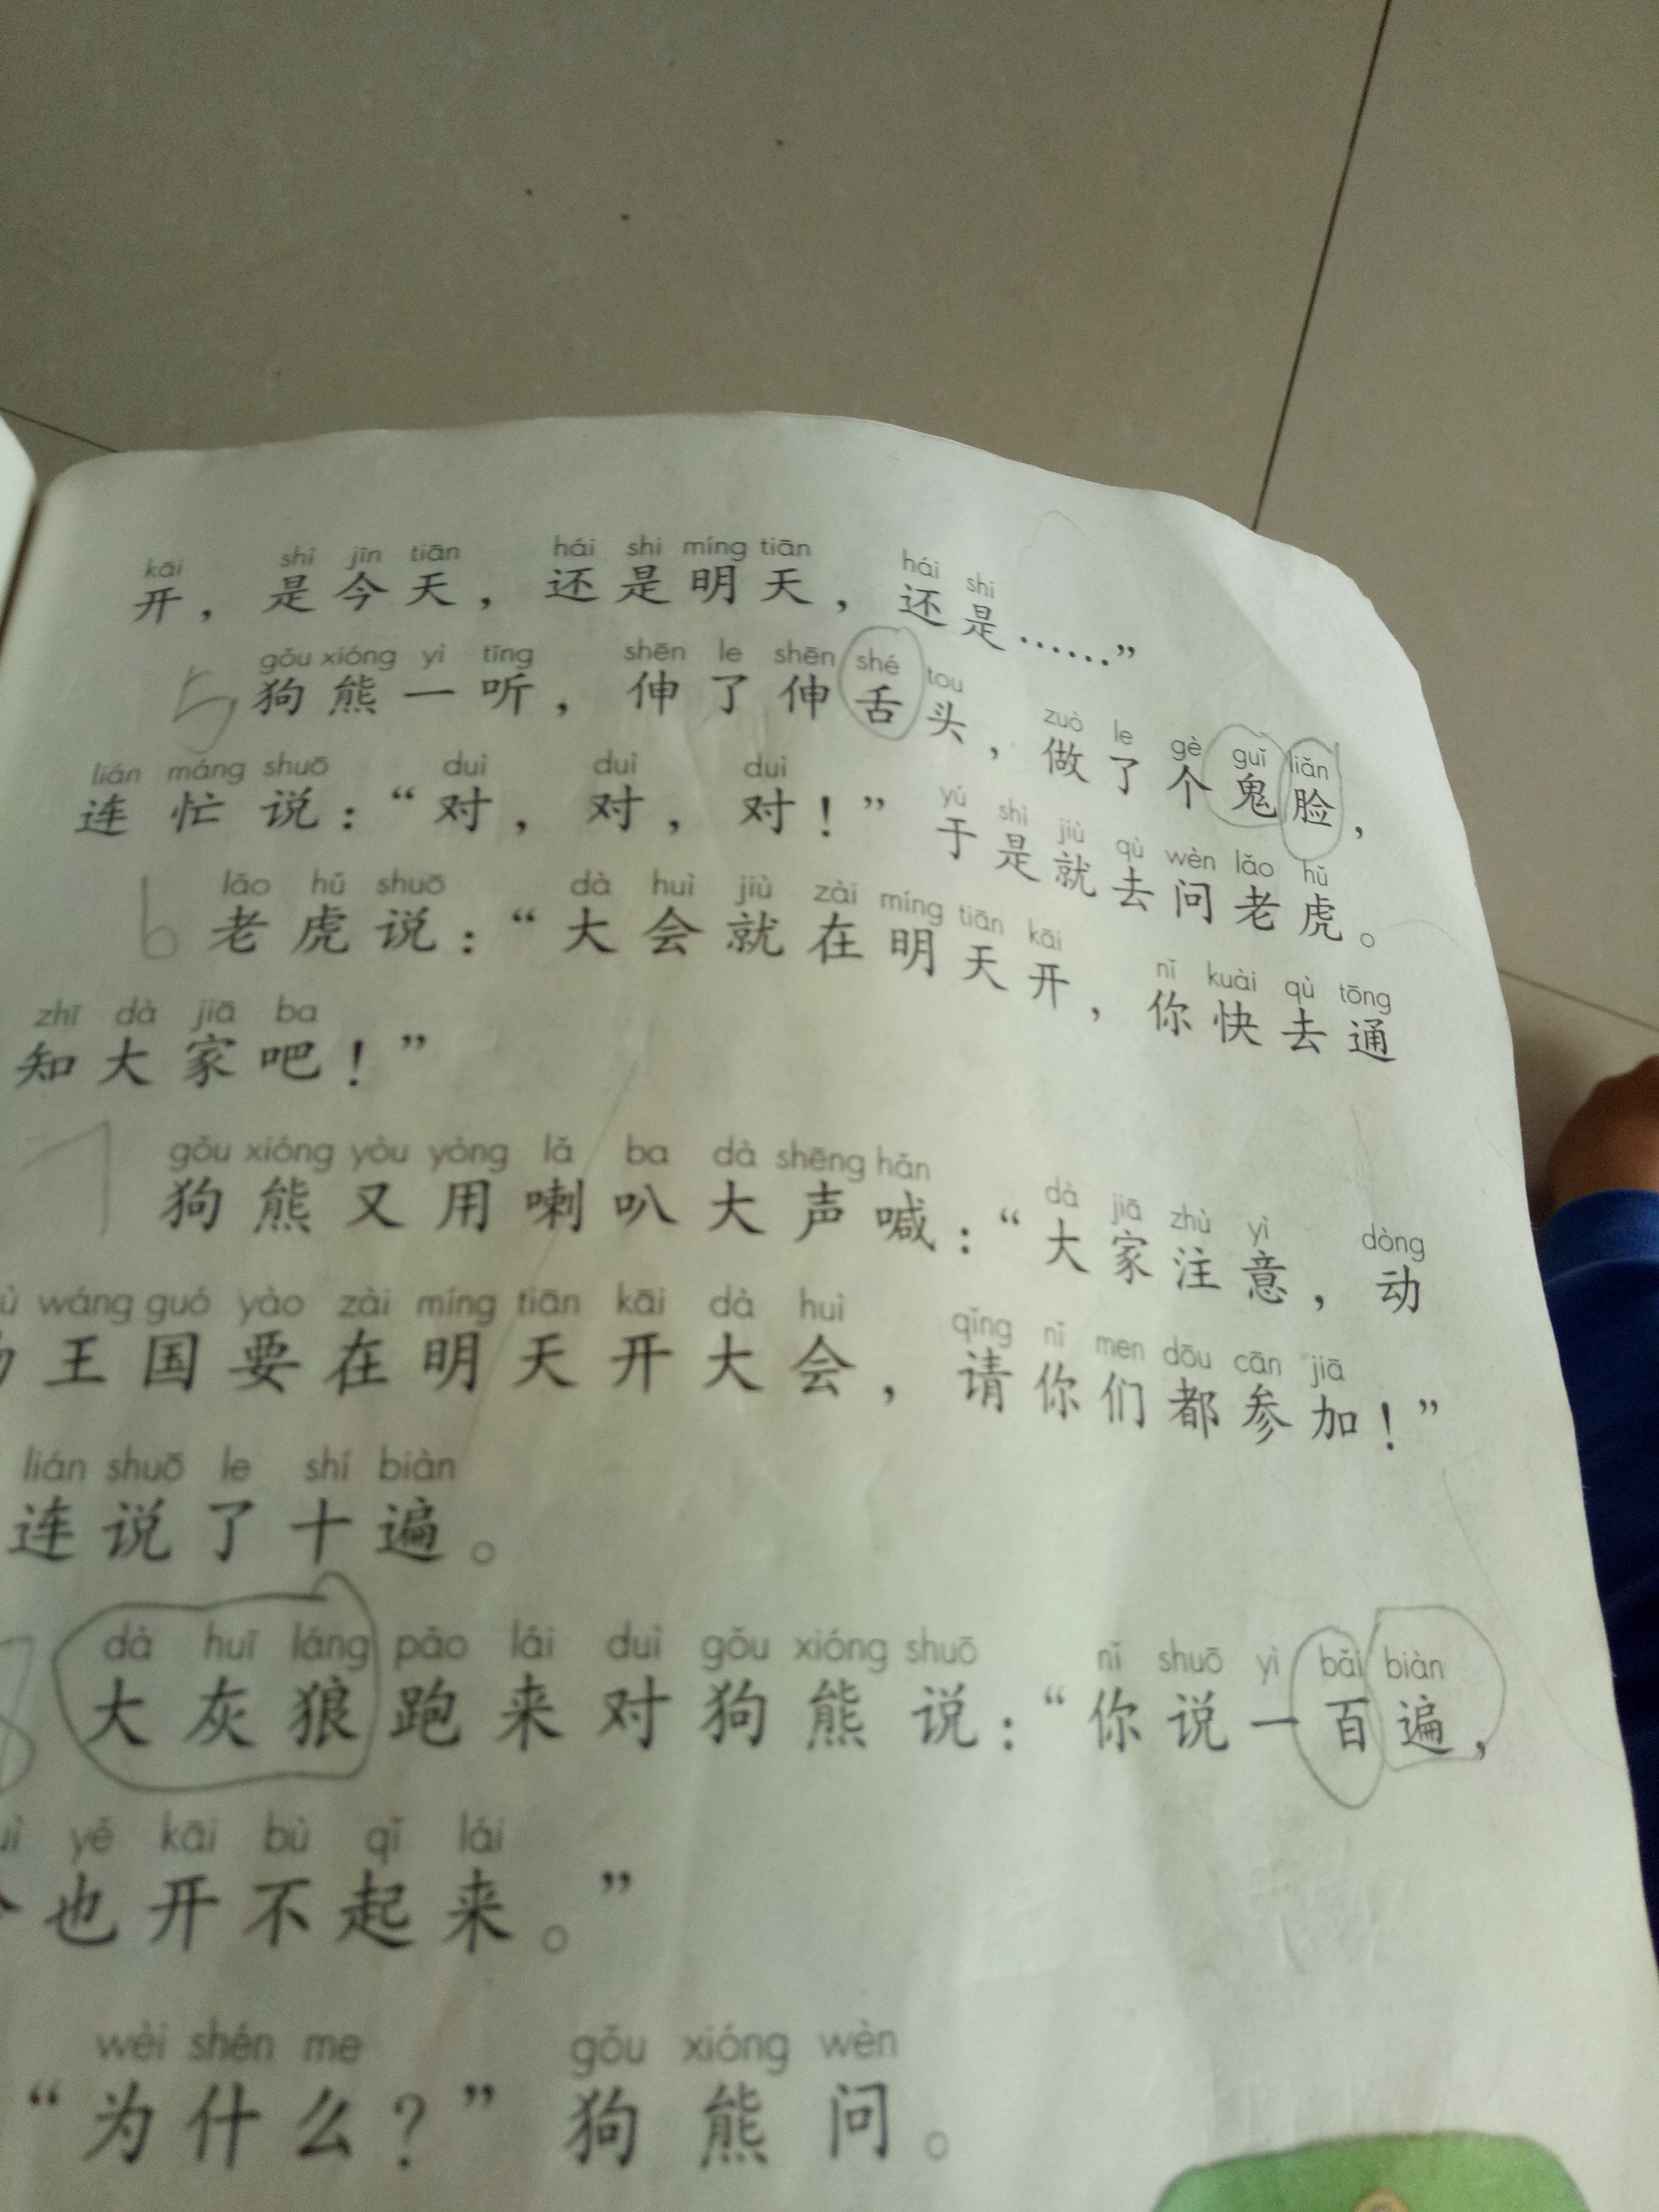 kāi shì jīn tiān hái shi míng tiān hái shi
开，是今天，还是明天，还是……”
5 gǒu xióng yì tīng shēn le shēn shé tou zuò le gè guǐ liǎn
狗熊一听，伸了伸舌头，做了个鬼脸，
lián máng shuō duì duì duì yú shì jiù qù wèn lǎo hǔ
连忙说：“对，对，对！”于是就去问老虎。
6 lǎo hǔ shuō dà huì jiù zài míng tiān kāi nǐ kuài qù tōng
老虎说：“大会就在明天开，你快去通
zhī dà jiā ba
知大家吧！”
7 gǒu xióng yòu yòng lǎ ba dà shēng hǎn dà jiā zhù yì dòng
狗熊又用喇叭大声喊：“大家注意，动
wáng guó yào zài míng tiān kāi dà huì qǐng nǐ men dōu cān jiā
王国要在明天开大会，请你们都参加！”
lián shuō le shí biàn
连说了十遍。
8 dà huī láng pǎo lái duì gǒu xióng shuō nǐ shuō yì bǎi biàn
大灰狼跑来对狗熊说：“你说一百遍，
yě kāi bù qǐ lái
也开不起来。”
wèi shén me gǒu xióng wèn
“为什么？”狗熊问。